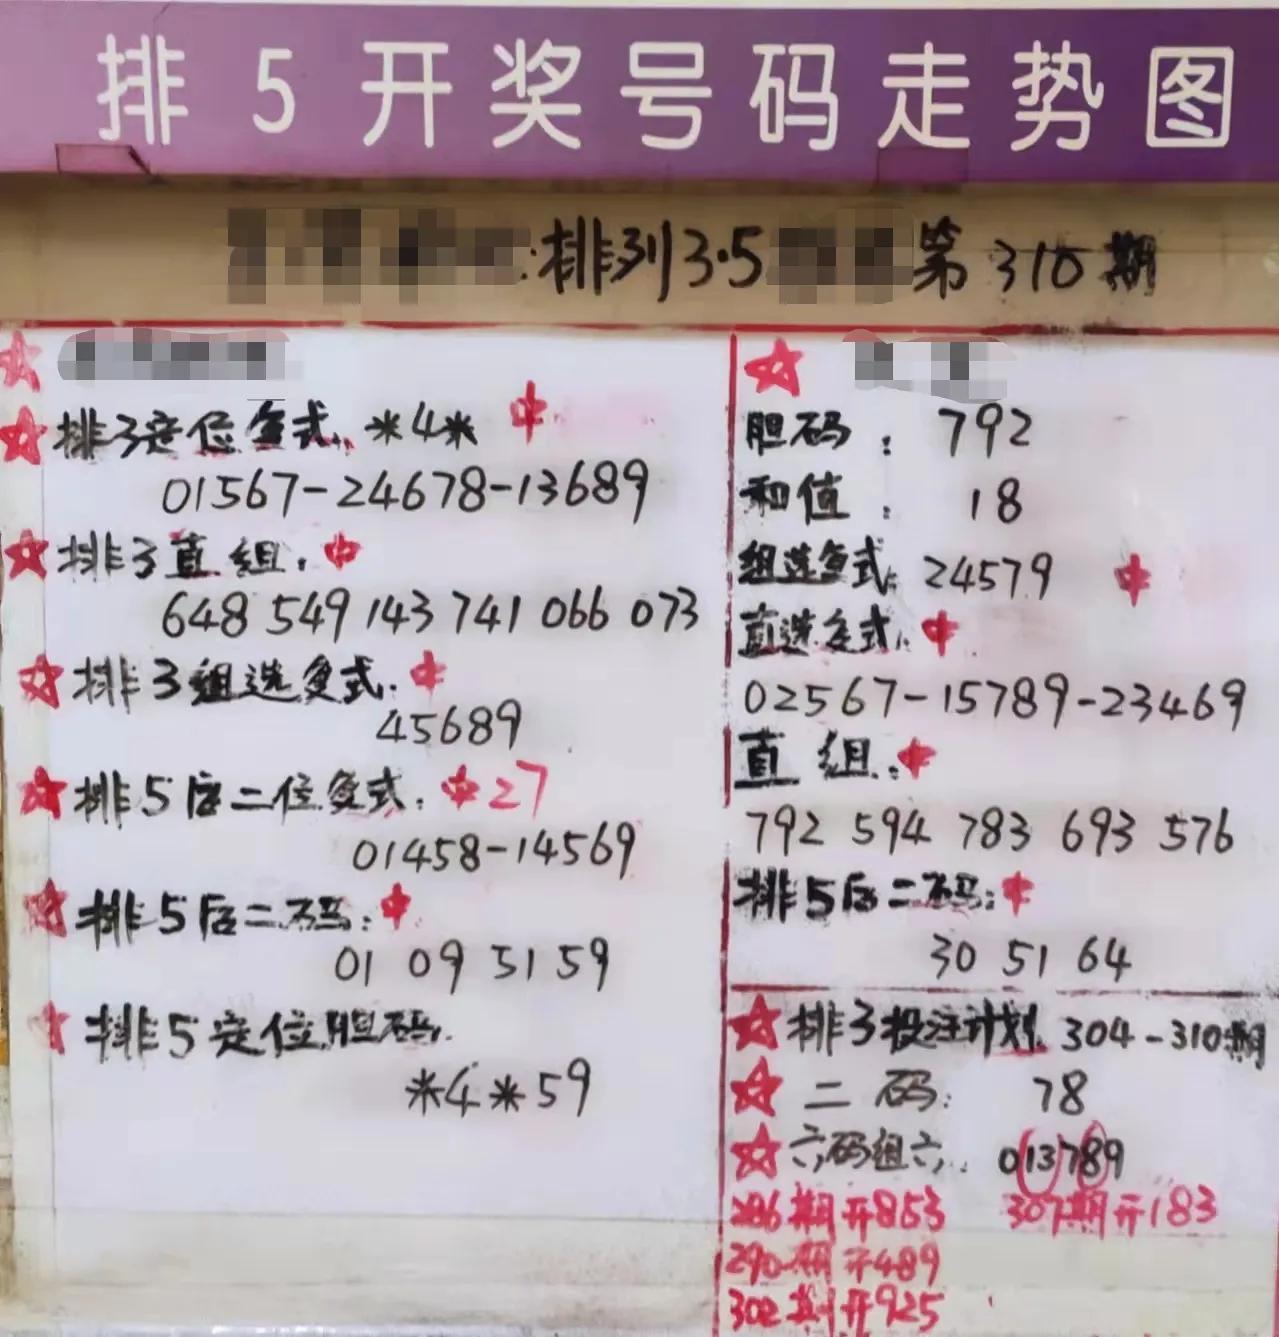 排5开奖号码走势图
:排列3·5 第310期
排3定位复式: *4* 中
01567-24678-13689
排3直组: 中
648 549 143 741 066 073
排3组选复式: 中
45689
排5后二位复式: 中27
01458-14569
排5后二码: 中
01 09 51 59
排5定位胆码:
*4*59
胆码: 792
和值: 18
组选复式: 24579 中
直选复式: 中
02567-15789-23469
直组: 中
792 594 783 693 576
排5后二码: 中
30 51 64
排3投注计划 304-310期
二码: 78
六码组六: 013789
286期开853 307期开183
290期开489
302期开925